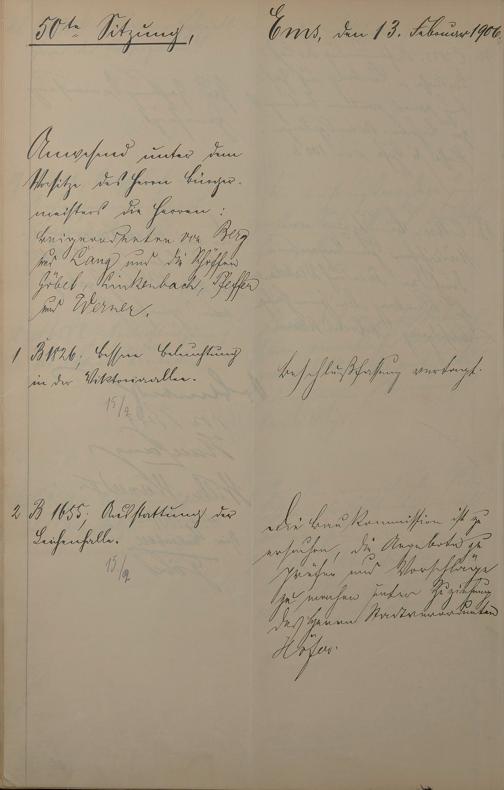 50te Sitzung,
Ems, den 13. Februar 1906.
Anwesend unter dem
Vorsitze des Herrn Bürger-
meisters die Herren:
Beigeordneten von Berg
und Lang und die Schöffen
Göbel, Linkenbach, Pfeffer
und Werner.
1 B 1826, bessere Beleuchtung
in der Viktoriaallee.
15/2
Beschlußfassung vertagt.
2 B 1655. Ausstattung der
Leichenhalle.
15/2
Die Baukommission ist zu
ersuchen, die Angebote zu
prüfen und Vorschläge
zu machen unter Zuziehung
des Herrn Stadtverordneten
Höfer.